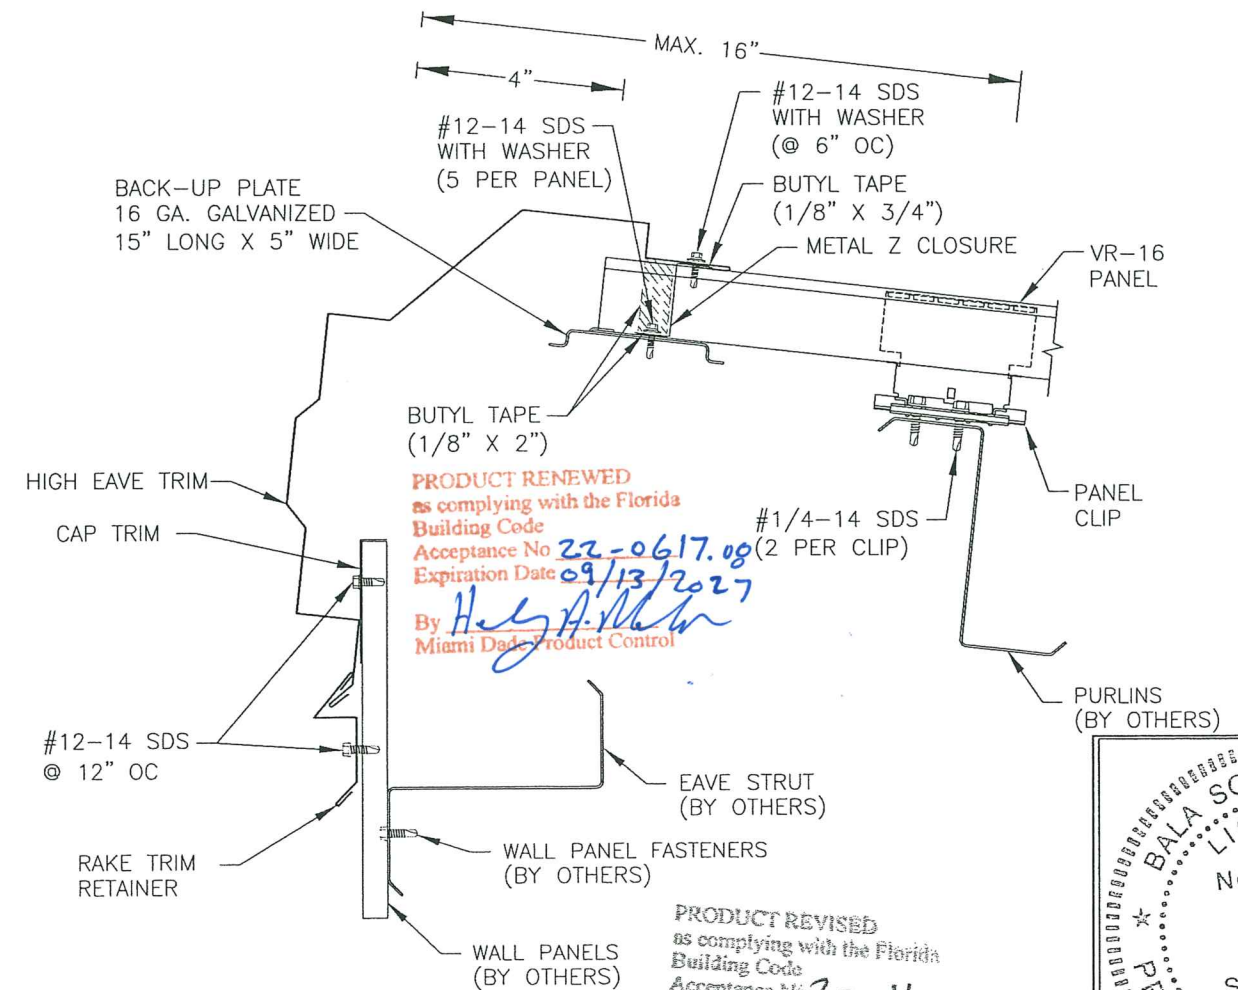 MAX. 16"
4"
#12-14 SDS
WITH WASHER
(@ 6" OC)
#12-14 SDS
WITH WASHER
(5 PER PANEL)
BUTYL TAPE
(1/8" X 3/4")
BACK-UP PLATE
16 GA. GALVANIZED
15" LONG X 5" WIDE
METAL Z CLOSURE
VR-16
PANEL
BUTYL TAPE
(1/8" X 2")
HIGH EAVE TRIM
CAP TRIM
PRODUCT RENEWED
as complying with the Florida
Building Code
Acceptance No 22-0617.08
Expiration Date 09/13/2027
By
Miami Dade Product Control
#1/4-14 SDS
(2 PER CLIP)
PANEL
CLIP
PURLINS
(BY OTHERS)
#12-14 SDS
@ 12" OC
EAVE STRUT
(BY OTHERS)
RAKE TRIM
RETAINER
WALL PANEL FASTENERS
(BY OTHERS)
WALL PANELS
(BY OTHERS)
PRODUCT REVISED
as complying with the Florida
Building Code
Acceptance
BALA